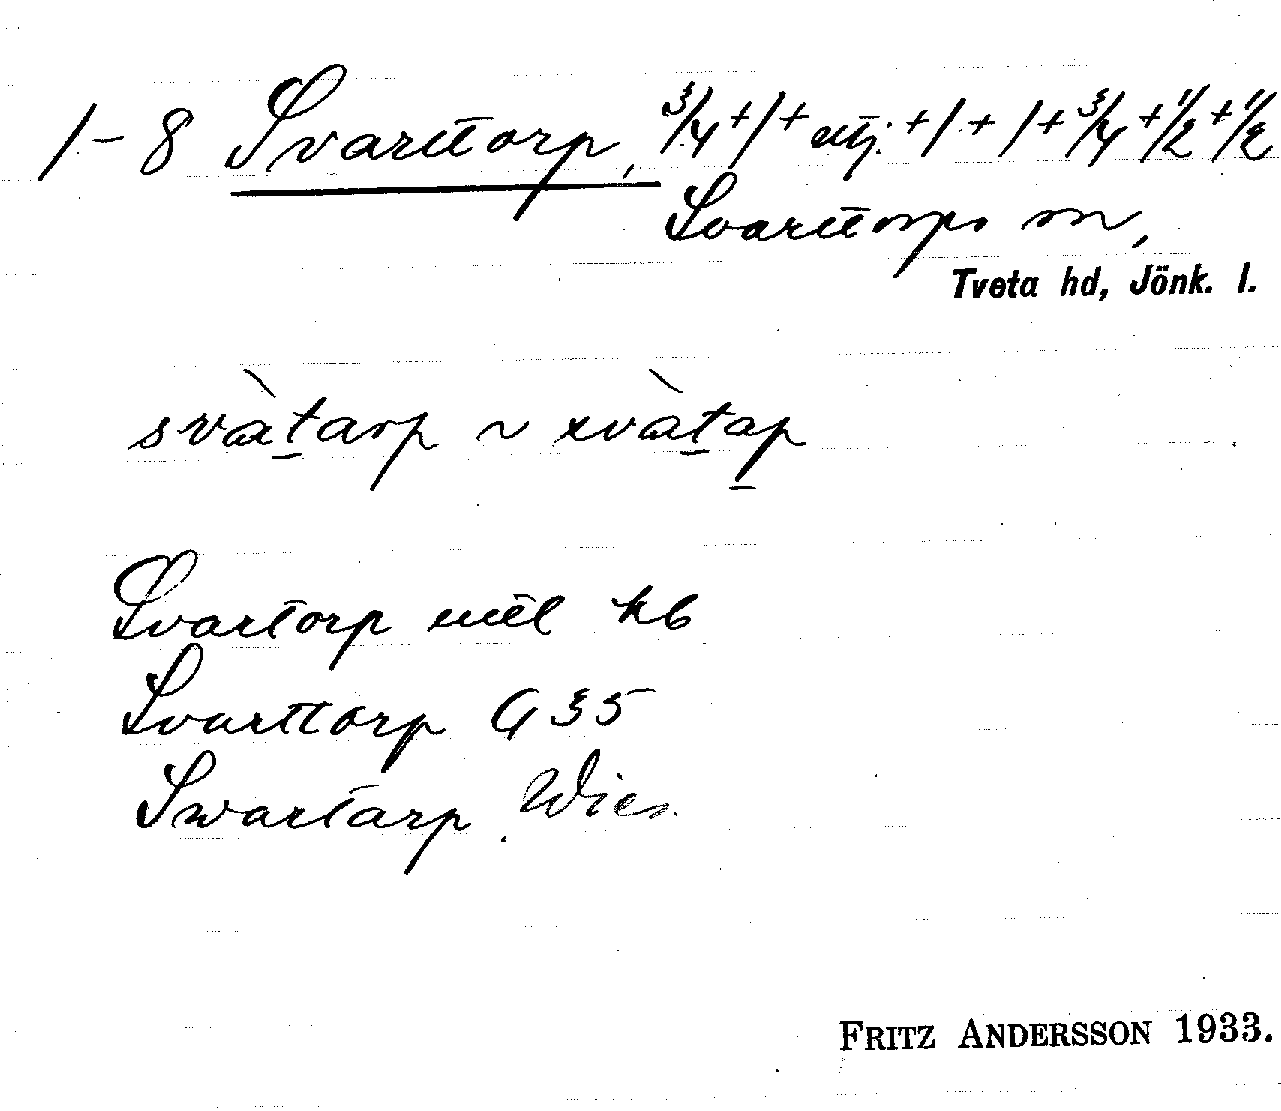 1-8 Svarttorp, 3/4 + 1 + utj. + 1 + 1 + 3/4 + 1/2 + 1/2
Svarttorps sn,
Tveta hd, Jönk. l.
svàtarp ~ svàtap
Svartorp uttl kb
Svarttorp G 35
Swartarp Wies.
FRITZ ANDERSSON 1933.